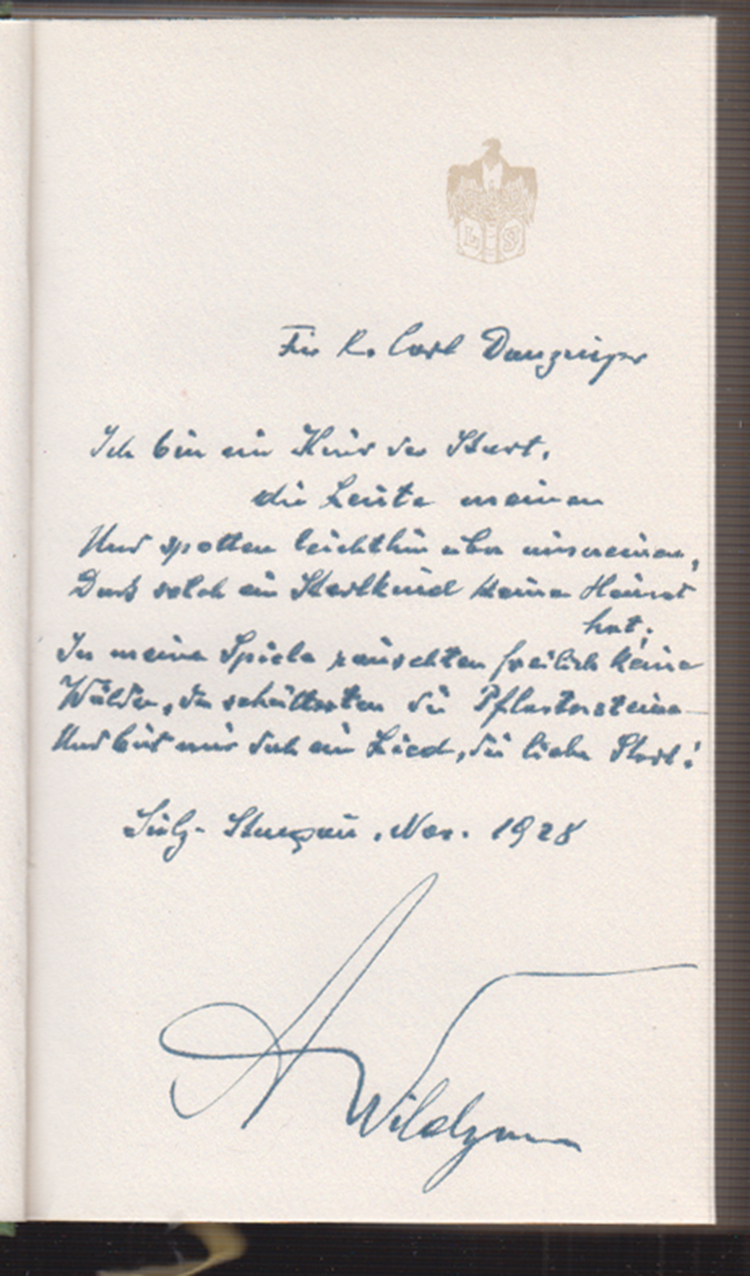 L S
Für R. Carl Danzinger
Ich bin ein Kind der Stadt,
die Leute meinen
Und spotten leichthin über unsereinen,
Daß solch ein Stadtkind keine Heimat
hat;
In meine Spiele rauschten freilich keine
Wälder, da schütterten die Pflastersteine
Und bist mir doch ein Lied, du liebe Stadt!
Sulz-Stangau, Nov. 1928
A Wildgans